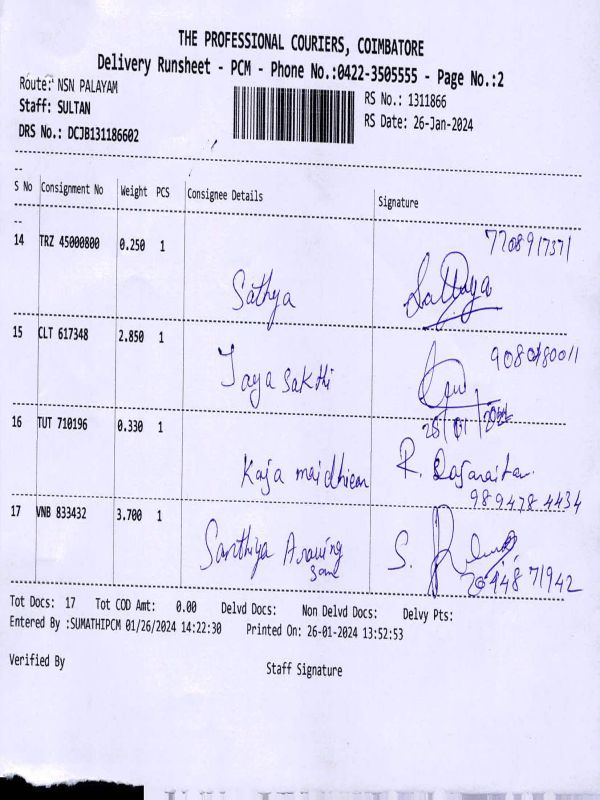 THE PROFESSIONAL COURIERS, COIMBATORE
Delivery Runsheet - PCM - Phone No.:0422-3505555 - Page No.:2
Route: NSN PALAYAM
RS No.: 1311866
Staff: SULTAN
RS Date: 26-Jan-2024
DRS No.: DCJB131186602
S No Consignment No Weight PCS Consignee Details Signature
14 TRZ 45000800 0.250 1
7708917371
Sathya Sathya
15 CLT 617348 2.850 1
9080480011
Jaya Sakthi
25/01/2024
16 TUT 710196 0.330 1
Kaja maidheen R.
989478 4434
17 VNB 833432 3.700 1
Santhiya S.
Tot Docs: 17 Tot COD Amt: 0.00 Delvd Docs: Non Delvd Docs: Delvy Pts:
Entered By :SUMATHIPCM 01/26/2024 14:22:30 Printed On: 26-01-2024 13:52:53
Verified By Staff Signature